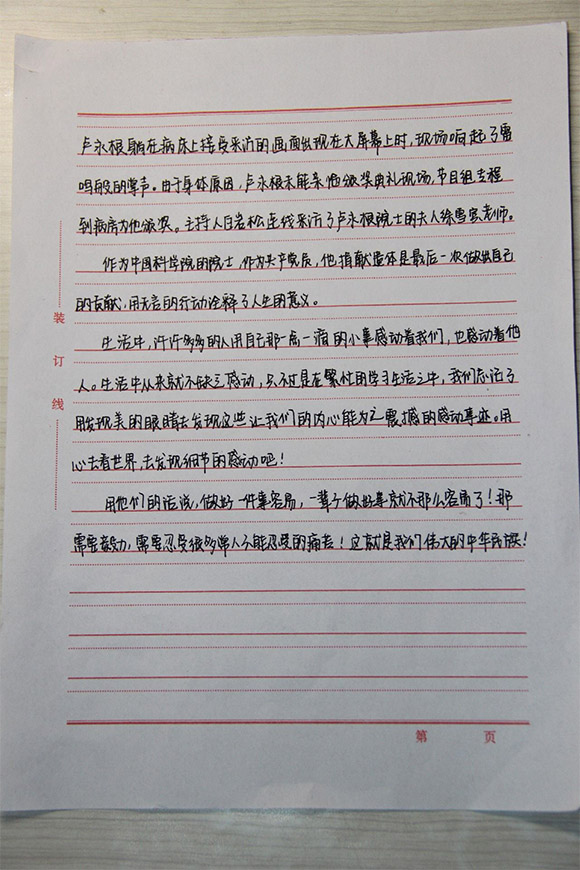 卢永根躺在病床上接受采访的画面出现在大屏幕上时，现场响起了雷
鸣般的掌声。由于身体原因，卢永根未能亲临颁奖典礼现场，节目组专程
到病房为他颁奖。主持人白岩松连线采访了卢永根院士的夫人徐雪宾老师。
作为中国科学院的院士，作为共产党员，他捐献遗体是最后一次做出自己
的贡献，用无言的行动诠释了人生的意义。
生活中，许许多多的人用自己那一点一滴的小事感动着我们，也感动着他
人。生活中从来就不缺乏感动，只不过是在繁忙的学习生活之中，我们忘记了
用发现美的眼睛去发现这些让我们的内心能为之震撼的感动事迹。用
心去看世界，去发现细节的感动吧！
用他们的话说，做好一件事容易，一辈子做好事就不那么容易了！那
需要毅力，需要忍受很多常人不能忍受的痛苦！这就是我们伟大的中华民族！
装
订
线
第 页